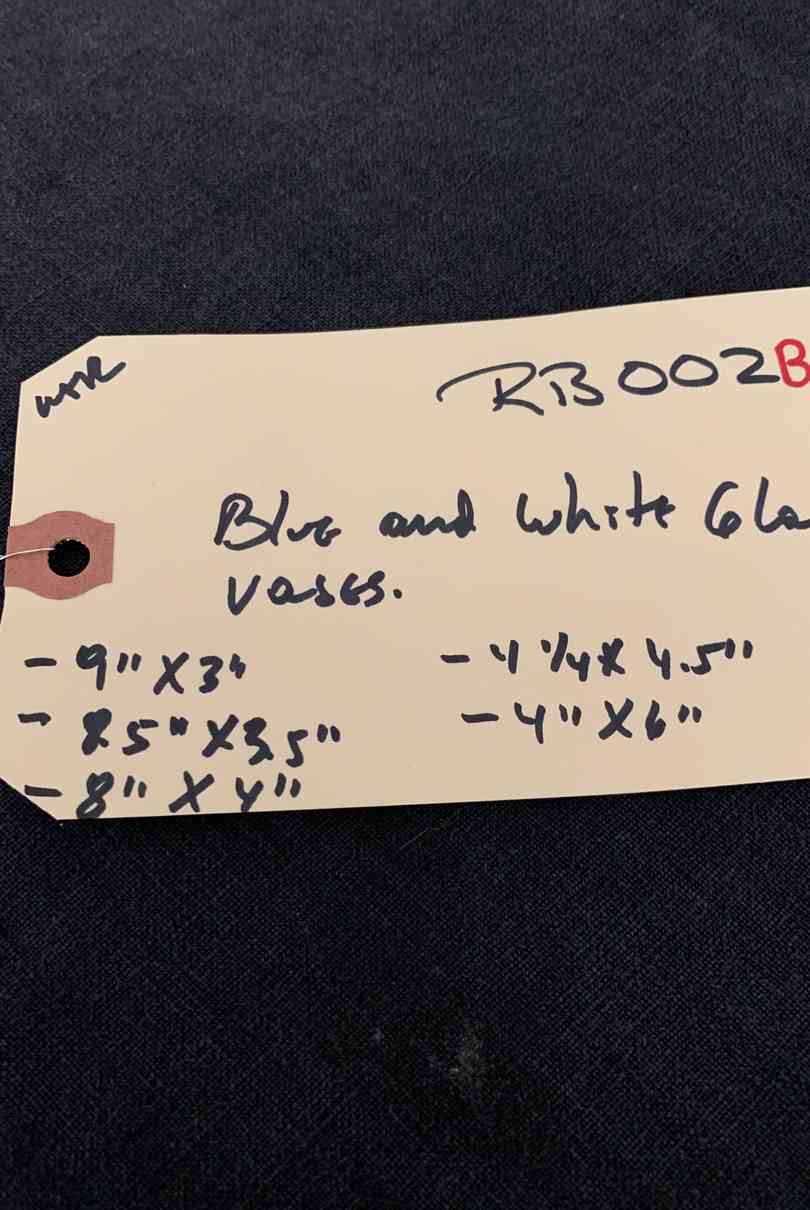 RB002B
Blue and white Gla
vases.
- 9" X 3"
- 8.5" X 3.5"
- 8" X 4"
- 4 1/4 X 4.5"
- 4" X 6"